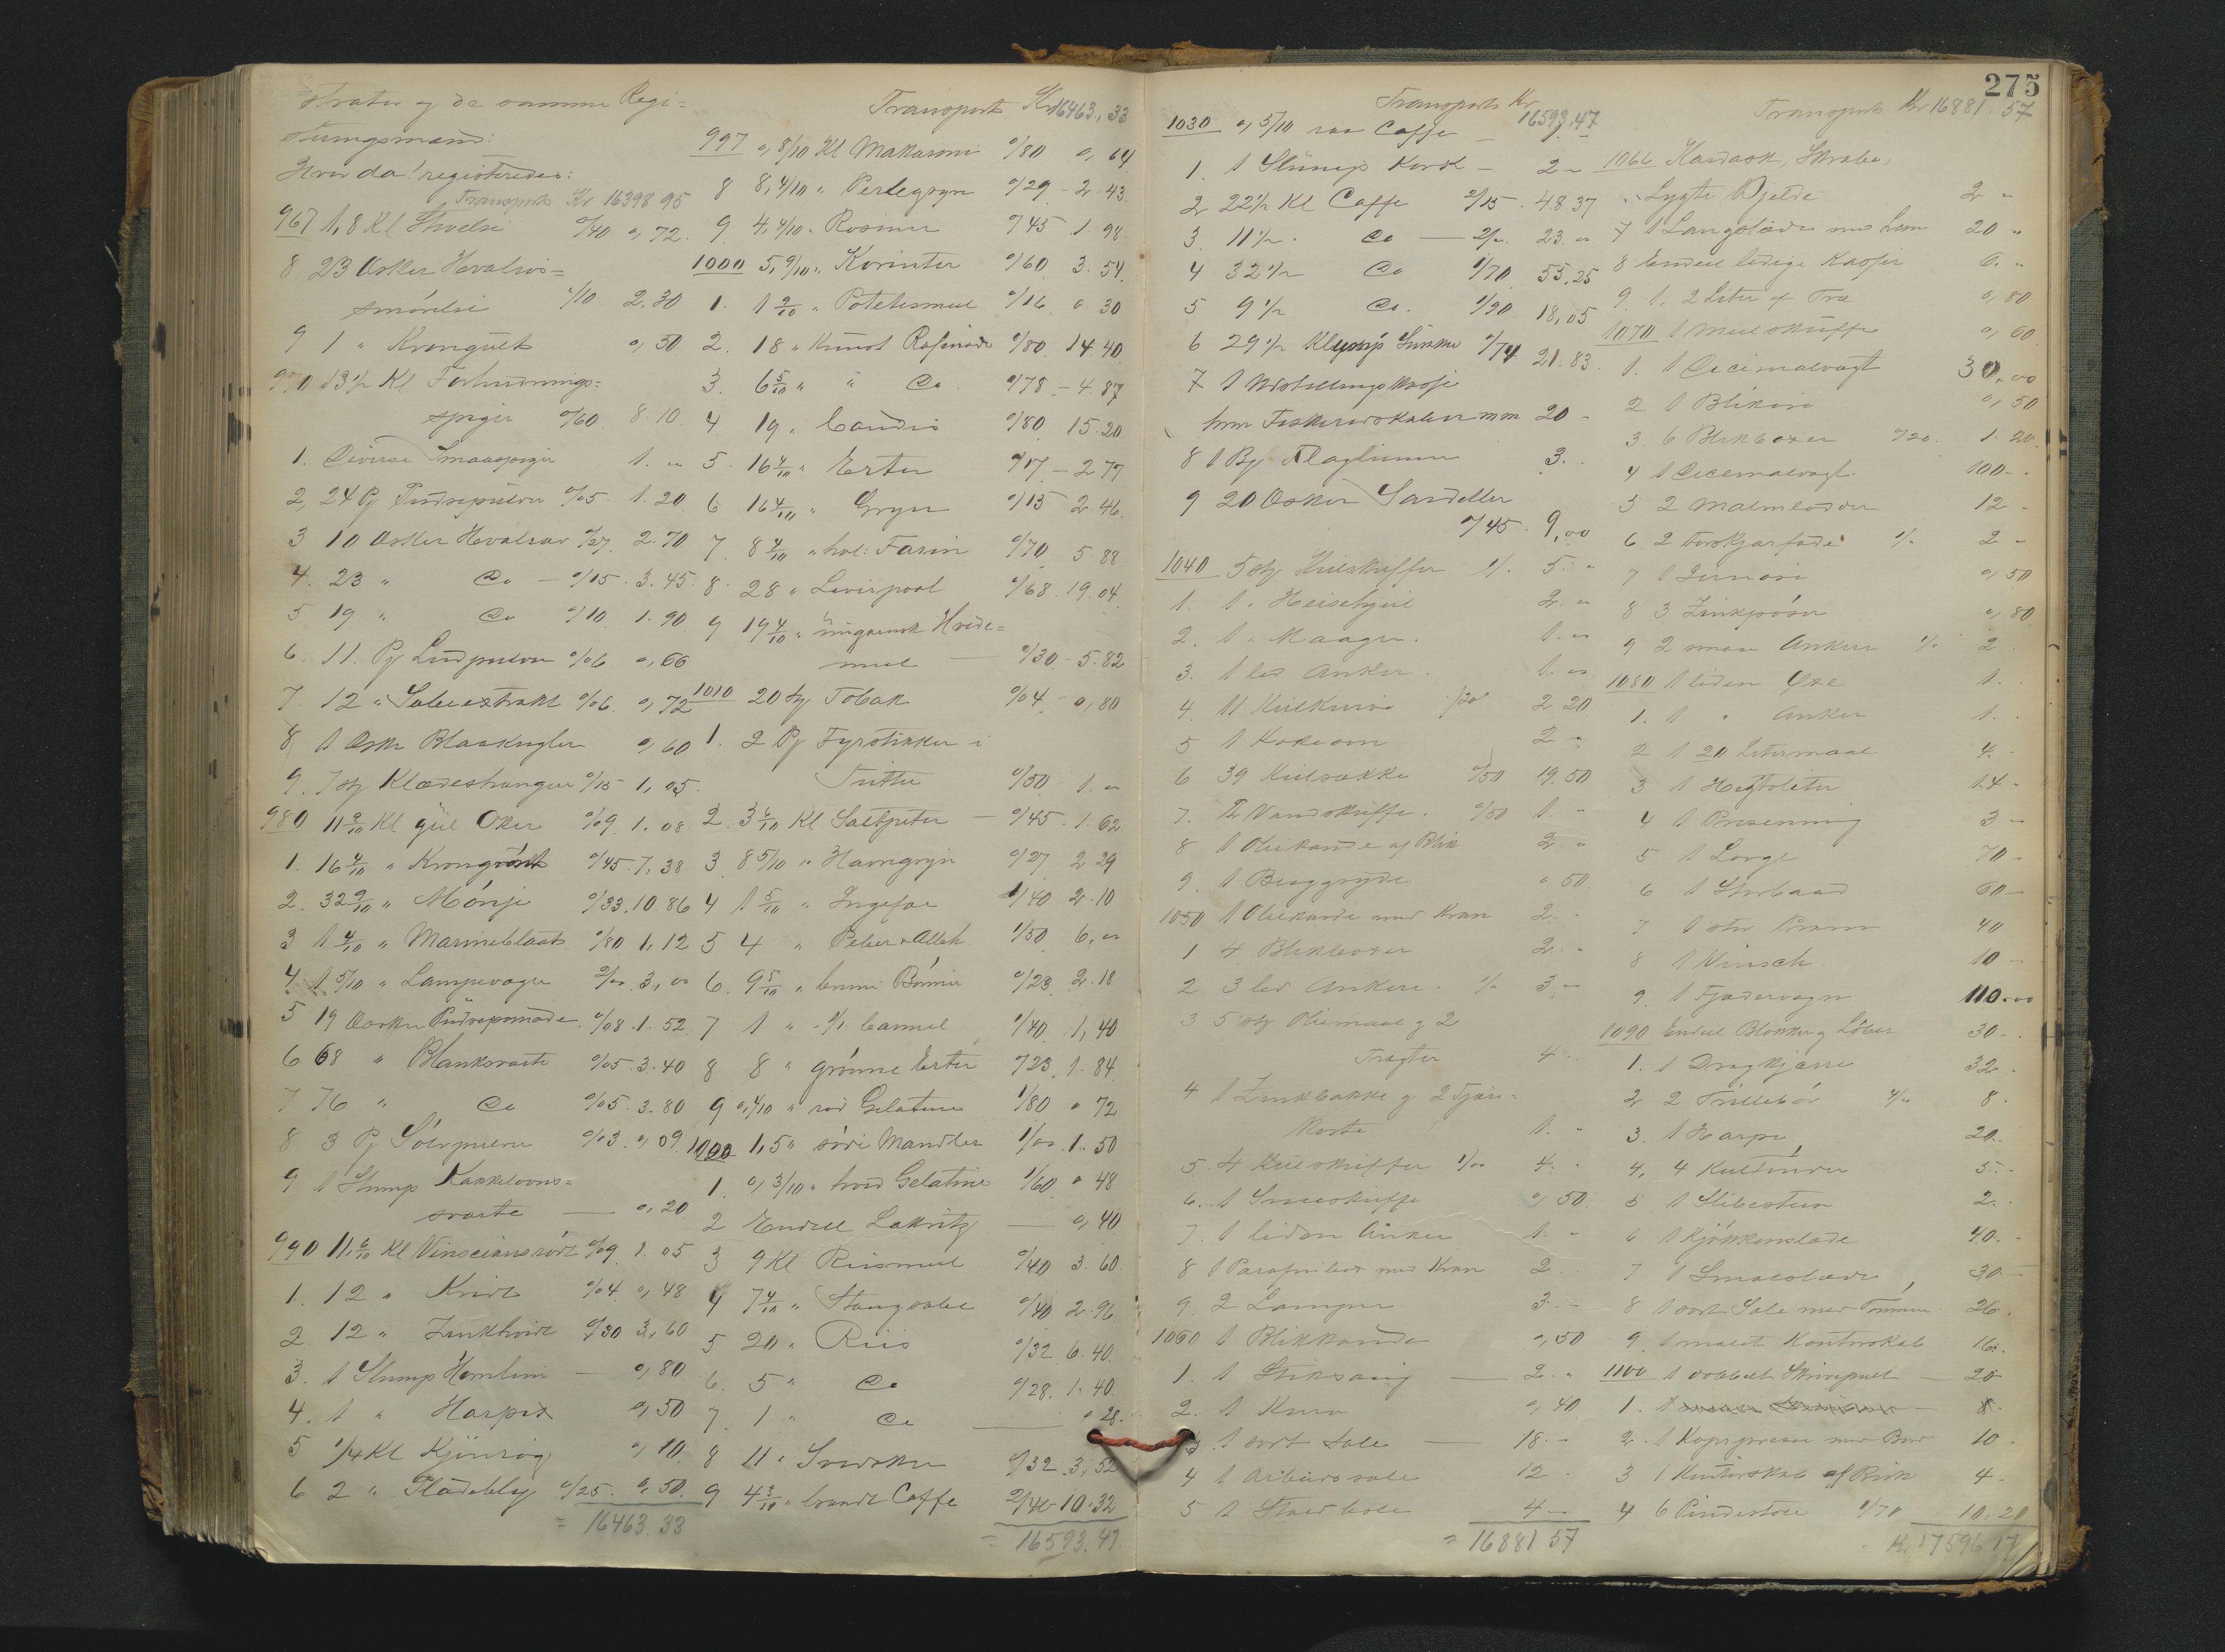 strator og de samme Regi=
streringsmænd:
Hvor da registreredes:
Transport Kr 16398.95
967 1,8 Kl Stivelse %40 0,72.
8 23 Æsker Hvalros=
smörelse %10 2.30
9 1 " Krongult 0,30
970 13½ Kl Forhudnings=
spiger %60 8 10.
1. Diverse Smaaspiger 1. "
2, 24 Pj Pudsepulver %05 1.20
3 10 Æsker Hvalrav %27. 2.70
4. 23 " Do - %15. 3.45.
5 19 " Do %10 1.90
6. 11. Pj Ludpulver %06 0,66
7. 12 " Sæbeextrakt %06. 0,72
8 1 Æske Blaakugler 0,60
9. 7 st Klædeshænger %15 1,05.
980 11 9/10 Kl gul Oker %09 1.08
1. 16 4/10 " Krongrönt %45. 7,38
2. 32 9/10 " Mönje %33. 10 86
3 1 4/10 " Marineblaat %80 1,12
4. 1 5/10 " Lampevæger 2/00 3,00
5 19 Æsker Pudsepomade %08. 1.52
6 68 " Blanksværte %05. 3.40
7 76 " Do %05. 3.80
8 3 Pj Sölvpulver %03. 0,09
9 1 Slump Kakkelovns=
sværte 0,20
990 11,6/10 Kl Vinseiansrödt %09 1.05
1. 12 " Kridt %04 0,48
2. 12 " Zinkhvidt %30 3,60
3. 1 Slump Hornlim 0,80
4. 1 " Harpix 0,50
5 ¼ Kl Kjönrög 0,10.
6 2 " Pladebly %25. 0.50.
= 16463.33
Transport Kr 16463,33
997 0,8/10 Kl Makaroni %80 0,64
8 8,4/10 " Perlegryn %29 - 2.43.
9. 4,4/10 " Rosiner %45 1.98.
1000 5,9/10 " Korinter %60. 3.54.
1. 1 9/10 " Potetesmeel %16. 0 30
2. 18 " Knust Rafinade %80. 14.40
3. 6 5/10 " " Do. %78 - 4.87
4 19 " Candis %80. 15.20
5. 16 4/10 " Erter %17 - 2 77
6 16 4/10 " Gryn %15 2.46.
7. 8 4/10 " hol: Farin %70. 5 88
8. 28 " Liverpool %68. 19.04.
9 19 4/10 " ungarnsk Hvede=
meel %30 - 5.82
1010 20 st Tobak %04. - 0,80
1. 2 Pj Fyrstikker i
Tutter %50 - 1. "
2. 3 6/10 Kl Saltpeter %45. 1.62
3 8 5/10 " Havregryn %27 2 29
4 1 5/10 " Ingefær 1/40 2.10
5 4 " Peber & Alleh. 1/50 6. "
6. 9 5/10 " brune Bönner %23. 2.18
7 1 " Cannel 1/40 1,40
8 8 " grönne Erter %23. 1.84
9 0,4/10 " röd Gelatine 1/80 0 72
1020 1,5 " söde Mandler 1/00 1.50
1. 0,3/10 " hvid Gelatine 1/60 0 48
2 Endeel Lakritz 0,40
3 9 Kl Riismeel %40 3.60.
4 7 4/10 " Stangsæbe %40 2.96.
5 20 " Riis %32 6.40.
6. 5 " Do %28. 1.40
7. 1 " Do 0 28.
8 11 " Svedsker %32 3,52
9 4 3/10 " brændt Caffe 2/40 10.32
= 16593.47
275
Transport Kr 16593.47
1030 0,5/10 raa Caffe -
1. 1 Slump Kork - 2 -
2 22½ Kl Caffe 2/15. 48.37
3. 11½ . Do 2/". 23. "
4 32½ Do 1/70 55,25
5 9½ Do. 1/90 18,05
6 29½ Klump Sukker %74 21.83.
7 1 Udstillingskasse
hvor Fiskeredskaber mm 20 -
8 1 By Flagliner 3.
9 20 Æsker Sardeller
%45. 9,00
1040 5 st Kulskuffer 1/. 5. "
1. 1. Heisehjul 2 "
2. 1 " Maager. 1. "
3. 1 led Anker. 1. "
4. 11 Kulkurve %20 2 20
5 1 Kokeovn 2 "
6 39 Kulsække %50 19.50
7. 2 Vandskuffe. %50 1. -
8 1 Oliekande af Blik 2. "
9. 1 Beggryde " 50.
1050 1 Oliekande med Kran 2. -
1 4 Blikboxer 2. -
2 3 led Ankere. 1/. 3 -
3 5 st Oliemaal og 2
Tragter 4 -
4 1 Zinkbakke og 2 Tjære=
koste 1. -
5. 4 Kulskuffer 1/00 4. -
6. 1 Sneeskuffe 0,50
7. 1 liden Anker 1. -
8 1 Parafinfad med Kran 2.
9. 2 Lamper 3 -
1060 1 Blikkande 0,50
1. 1 Stiksaug 2. "
2. 1 Kurv 0,40
3 1 sort Sæle 18. -
4 1 Arbeidssæle 12.
5 1 Stoel bole 4 -
= 16881.57
Transport Kr 16881.57
1066 Kardask, Skrabe,
" Lygte Bjelde 2 "
7 1 Langslæde med Lem 20 "
8 Endeel ledige Kasser 6. "
9 1. 2 Liter af Træ 0,80
1070 1 Meelskuffe 0,60.
1. 1 Decimalvægt 30,00
2 1 Blikøse 0,50
3. 6 Blikboxer %20. 1.20
4 1 Decimalvægt 100 -
5 2 Malmlodder 12 -
6. 2 Torskjarfade 1/. 2 -
7 1 Jernøse 0,50
8 3 Zinkpöser 0,80.
9 2 smaa Ankere 1/. 2.
1080 1 liden Øse 1.
1. 1 " Anker 1.
2 1 20 Litermaal 4.
3 1 Hektoliter 14 -
4 1 Presenning 3 -
5 1 Lorge 70 -
6 1 Storbaad 60 -
7 1 stor Pram 40
8 1 Winsch 10 -
9. 1 Fjædervogn 110.00
1090 Endeel Blokker og Löber 30 -
1. 1 Dragkjærre 32 -
2 2 Trillebör 4/00 8.
3. 1 Harpe 20.
4, 4 Kultönder 5. -
5 1 Slibesteen 2.
6 1 Kjökkenslæde 40. -
7 1 Smaleslæde 30 -
8 1 sort Sæle med Tömmer 26.
9. 1 malet Kontorskab 16.
1100 1 dobbelt Skrivepult 20 -
1. 1 8.
2. 1 Kopipresse med Bord 10 -
3 1 Kontorskab af Birk 4 -
4 6 Pindestole 1/70 10.20
Kr. 17596.17